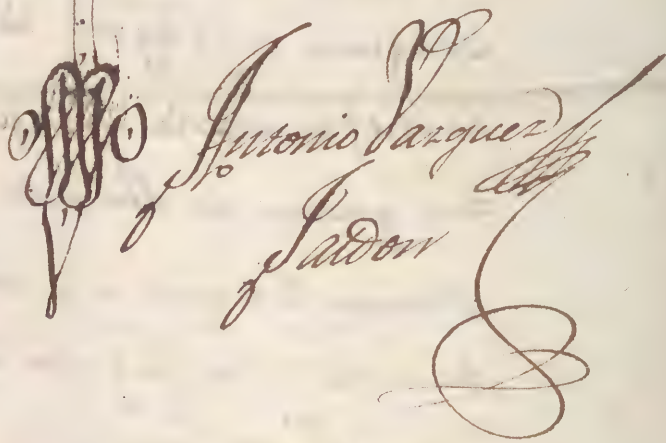 Antonio Vazquez
Jaudon